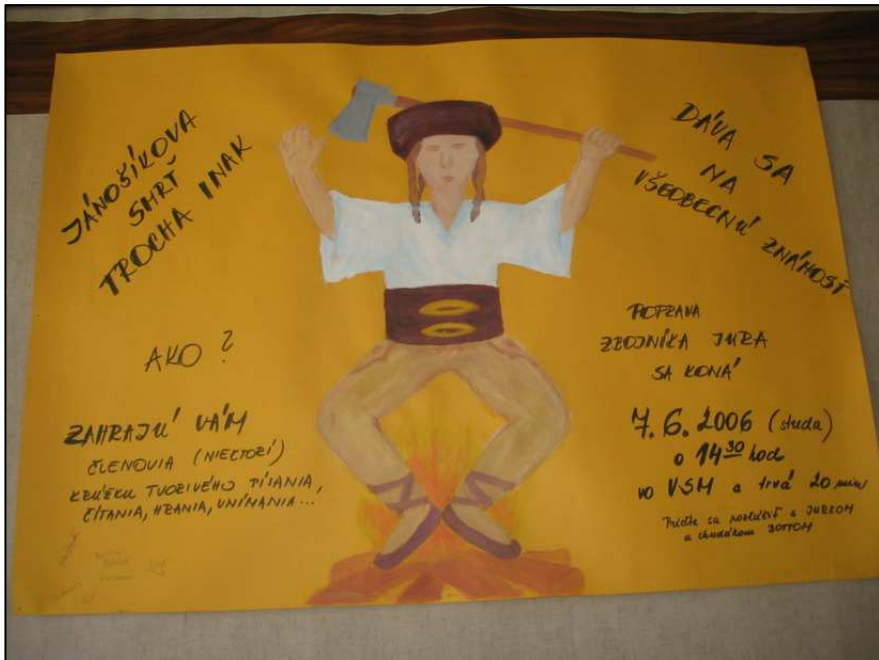 JÁNOŠÍKOVA
SMRŤ
TROCHA INAK
AKO?
ZAHRAJÚ VÁM
ČLENOVIA (NIEKTORÍ)
KRÚŽKU TVORIVÉHO PÍSANIA,
ČÍTANIA, HRANIA, VNÍMANIA...
DÁVA SA
NA
VŠEOBECNÚ ZNÁMOSŤ
POPRAVA
ZBOJNÍKA JURA
SA KONÁ
7.6.2006 (streda)
o 14³⁰ hod
vo VSM a trvá 20 min
Príďte sa rozlúčiť s JURKOM
a chudákom BOTTOM